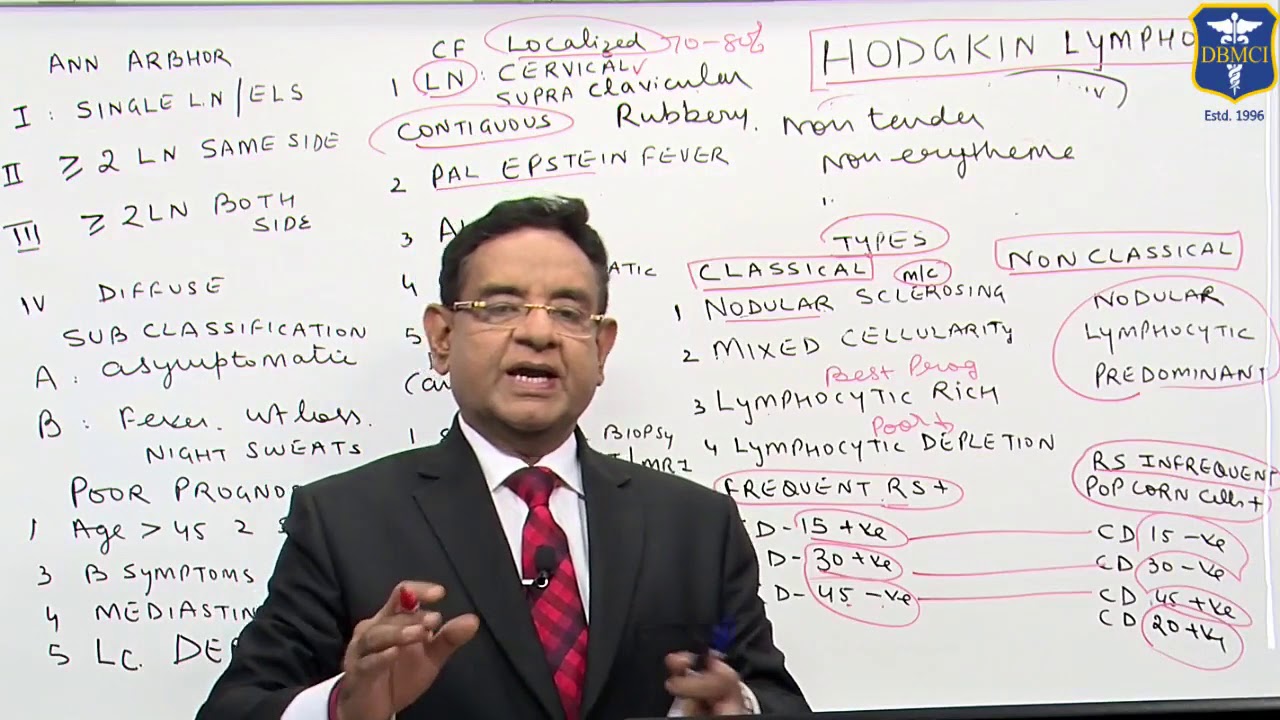 ANN ARBHOR
I : SINGLE LN/ELS
II ≥ 2 LN SAME SIDE
III ≥ 2 LN BOTH
SIDE
IV DIFFUSE
SUB CLASSIFICATION
A: asymptomatic
B: Fever. wt loss.
NIGHT SWEATS
POOR PROGNO
1 Age > 45 2
3 B SYMPTOMS
4 MEDIASTIN
5 LC. DE
CF Localized 70-80%
1 LN : CERVICAL
SUPRA Clavicular
CONTIGUOUS Rubbery. Non tender
Non erytheme
2 PAL EPSTEIN FEVER
3 AL
4 ATIC
5
1 BIOPSY
MRI
HODGKIN LYMPHO
TYPES
CLASSICAL m/c
1 NODULAR SCLEROSING
2 MIXED CELLULARITY
Best Prog
3 LYMPHOCYTIC RICH
Poor
4 LYMPHOCYTIC DEPLETION
FREQUENT RS+
D-15 +ve
D-30 +ve
D-45 -ve
NON CLASSICAL
NODULAR
LYMPHOCYTIC
PREDOMINANT
RS INFREQUENT
POP CORN Cells +
CD 15 -ve
CD 30 -ve
CD 45 +ve
CD 20 +ve
DBMCI
Estd. 1996